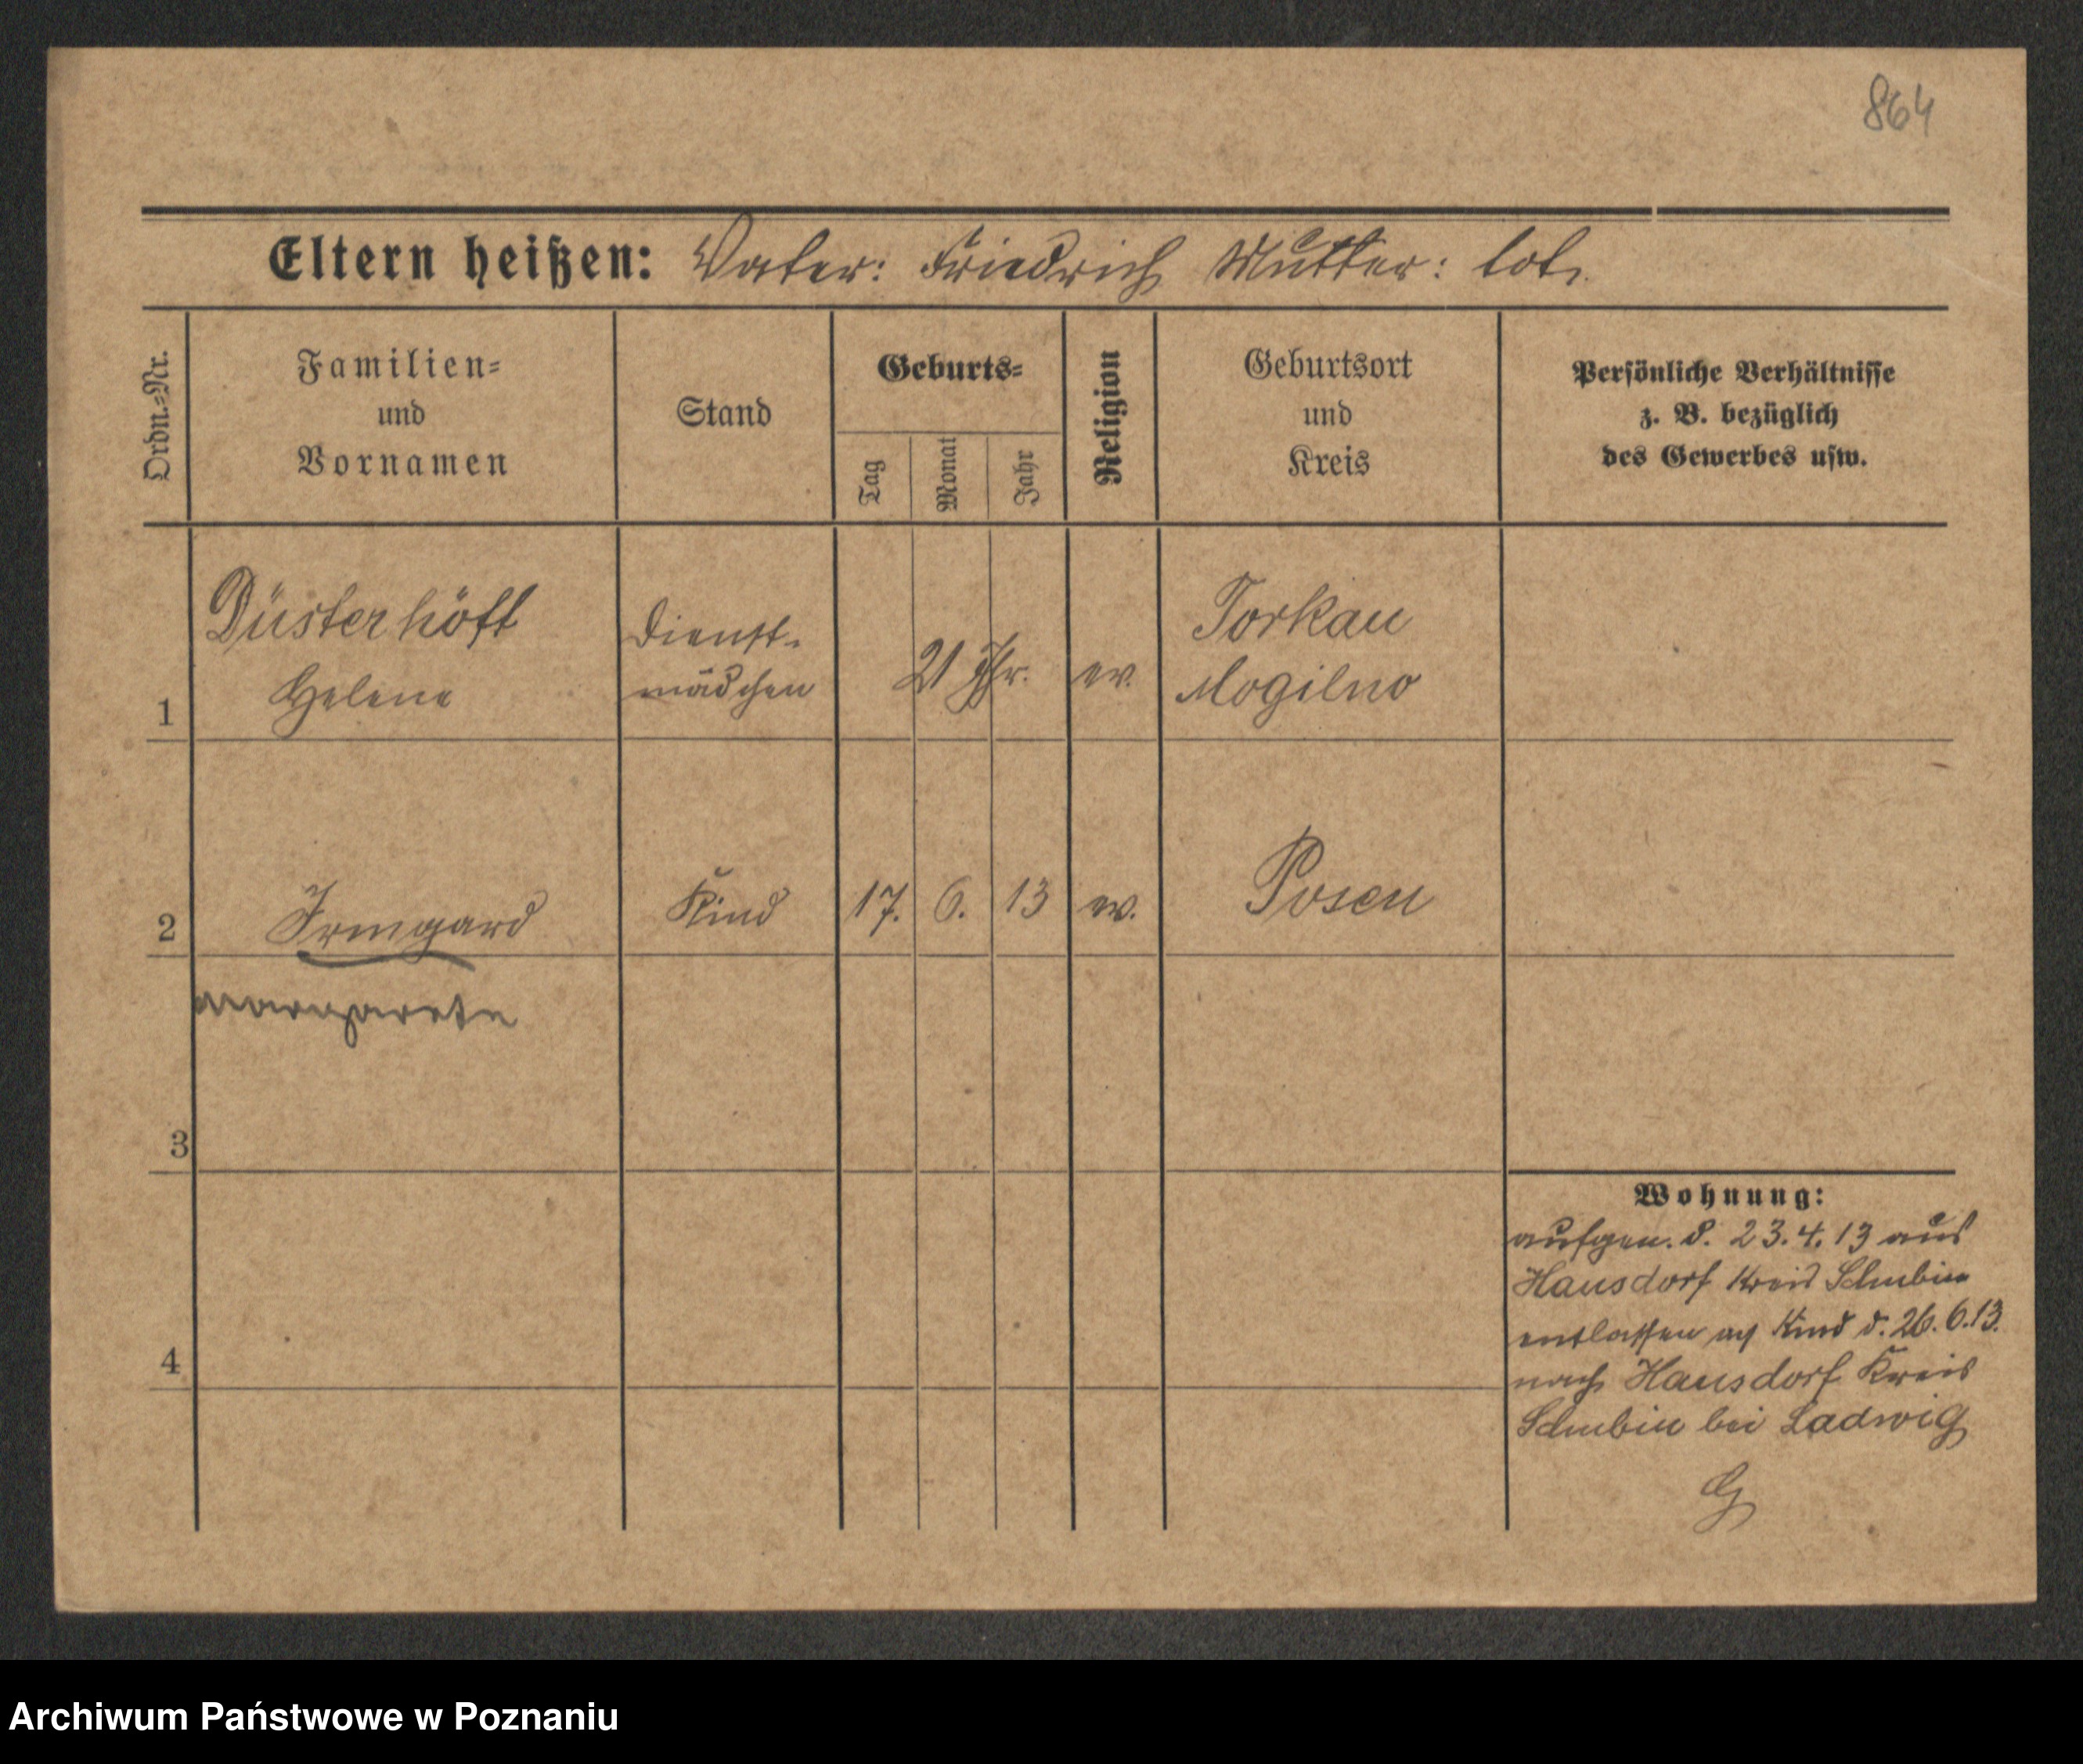 864
Eltern heißen: Vater: Friedrich Mutter: tot.
Ordn.-Nr.
Familien-
und
Vornamen
Stand
Geburts-
Tag
Monat
Jahr
Religion
Geburtsort
und
Kreis
Persönliche Verhältnisse
z. B. bezüglich
des Gewerbes usw.
1
Düsterhöft
Helene
Dienst-
mädchen
21 Jhr.
ev.
Torkau
Mogilno
2
Irmgard
Kind
17.
6.
13
ev.
Posen
Margarete
3
4
Wohnung:
aufgen. d. 23.4.13 aus
Hausdorf Kreis Schubin
entlassen Kind d. 26.6.13.
nach Hausdorf Kreis
Schubin bei Ladwig
G
Archiwum Państwowe w Poznaniu